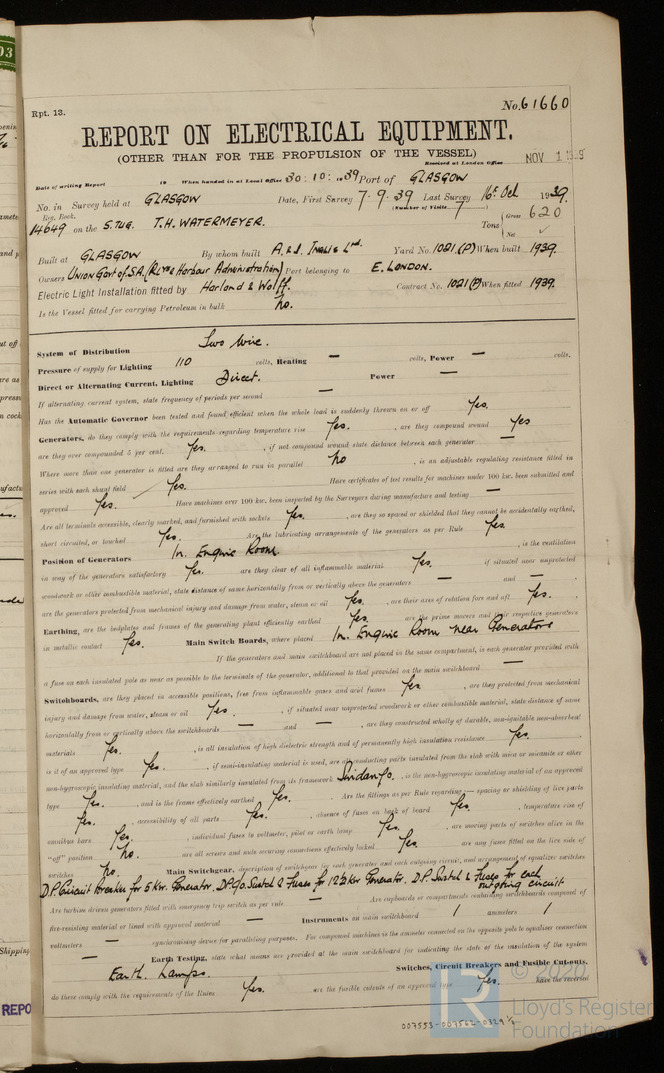 Rpt. 13.
No. 61660
REPORT ON ELECTRICAL EQUIPMENT.
(OTHER THAN FOR THE PROPULSION OF THE VESSEL)
Received at London Office NOV 1 1939
Date of writing Report 19 When handed in at Local Office 30:10:1939 Port of GLASGOW
No. in Survey held at GLASGOW Date, First Survey 7.9.39 Last Survey 16th Oct 1939.
Reg. Book. (Number of Visits 7)
14649 on the S.TUG. T.H. WATERMEYER. Tons Gross 620
Net ✓
Built at GLASGOW By whom built A. & J. Inglis Ltd. Yard No. 1021 (P) When built 1939.
Owners Union Govt of S.A. (Rlys & Harbour Administration) Port belonging to E. LONDON.
Electric Light Installation fitted by Harland & Wolff. Contract No. 1021 (P) When fitted 1939.
Is the Vessel fitted for carrying Petroleum in bulk No.
System of Distribution Two Wire.
Pressure of supply for Lighting 110 volts, Heating — volts, Power — volts.
Direct or Alternating Current, Lighting Direct. Power —
If alternating current system, state frequency of periods per second —
Has the Automatic Governor been tested and found efficient when the whole load is suddenly thrown on or off Yes.
Generators, do they comply with the requirements regarding temperature rise Yes. , are they compound wound Yes
are they over compounded 5 per cent. Yes. , if not compound wound state distance between each generator —
Where more than one generator is fitted are they arranged to run in parallel No , is an adjustable regulating resistance fitted in
series with each shunt field Yes. Have certificates of test results for machines under 100 kw. been submitted and
approved Yes. Have machines over 100 kw. been inspected by the Surveyors during manufacture and testing —
Are all terminals accessible, clearly marked, and furnished with sockets Yes. , are they so spaced or shielded that they cannot be accidentally earthed,
short circuited, or touched Yes. Are the lubricating arrangements of the generators as per Rule Yes.
Position of Generators In Engine Room , is the ventilation
in way of the generators satisfactory Yes. are they clear of all inflammable material Yes. if situated near unprotected
woodwork or other combustible material, state distance of same horizontally from or vertically above the generators — and — ,
are the generators protected from mechanical injury and damage from water, steam or oil Yes. , are their axes of rotation fore and aft Yes.
Earthing, are the bedplates and frames of the generating plant efficiently earthed Yes. are the prime movers and their respective generators
in metallic contact Yes. Main Switch Boards, where placed In Engine Room near Generators
If the generators and main switchboard are not placed in the same compartment, is each generator provided with
a fuse on each insulated pole as near as possible to the terminals of the generator, additional to that provided on the main switchboard —
Switchboards, are they placed in accessible positions, free from inflammable gases and acid fumes Yes , are they protected from mechanical
injury and damage from water, steam or oil Yes. , if situated near unprotected woodwork or other combustible material, state distance of same
horizontally from or vertically above the switchboards — and — , are they constructed wholly of durable, non-ignitable non-absorbent
materials Yes. , is all insulation of high dielectric strength and of permanently high insulation resistance Yes. ,
is it of an approved type Yes. , if semi-insulating material is used, are all conducting parts insulated from the slab with mica or micanite or other
non-hygroscopic insulating material, and the slab similarly insulated from its framework Sindanyo. , is the non-hygroscopic insulating material of an approved
type Yes. , and is the frame effectively earthed Yes. Are the fittings as per Rule regarding:— spacing or shielding of live parts
Yes. , accessibility of all parts Yes. , absence of fuses on back of board Yes. , temperature rise of
omnibus bars Yes. , individual fuses to voltmeter, pilot or earth lamp Yes. , are moving parts of switches alive in the
"off" position No. are all screws and nuts securing connections effectively locked Yes. are any fuses fitted on the live side of
switches No. Main Switchgear, description of switchgear for each generator and each outgoing circuit, and arrangement of equalizer switches
D.P. Circuit Breaker for 5 Kw. Generator. D.P. Switch & Fuses for 12½ Kw Generator. D.P. Switch & Fuses for each
outgoing circuit
Are turbine driven generators fitted with emergency trip switch as per rule — Are cupboards or compartments containing switchboards composed of
fire-resisting material or lined with approved material — Instruments on main switchboard 1 ammeters 1
voltmeters — synchronising device for paralleling purposes. For compound machines is the ammeter connected on the opposite pole to equaliser connection
— Earth Testing, state what means are provided at the main switchboard for indicating the state of the insulation of the system
Earth Lamps. Switches, Circuit Breakers and Fusible Cut-outs,
do these comply with the requirements of the Rules Yes. are the fusible cutouts of an approved type Yes. have the reversed
© 2020
Lloyd's Register
Foundation
007553-007562-0329 ½
REPO
Shipping